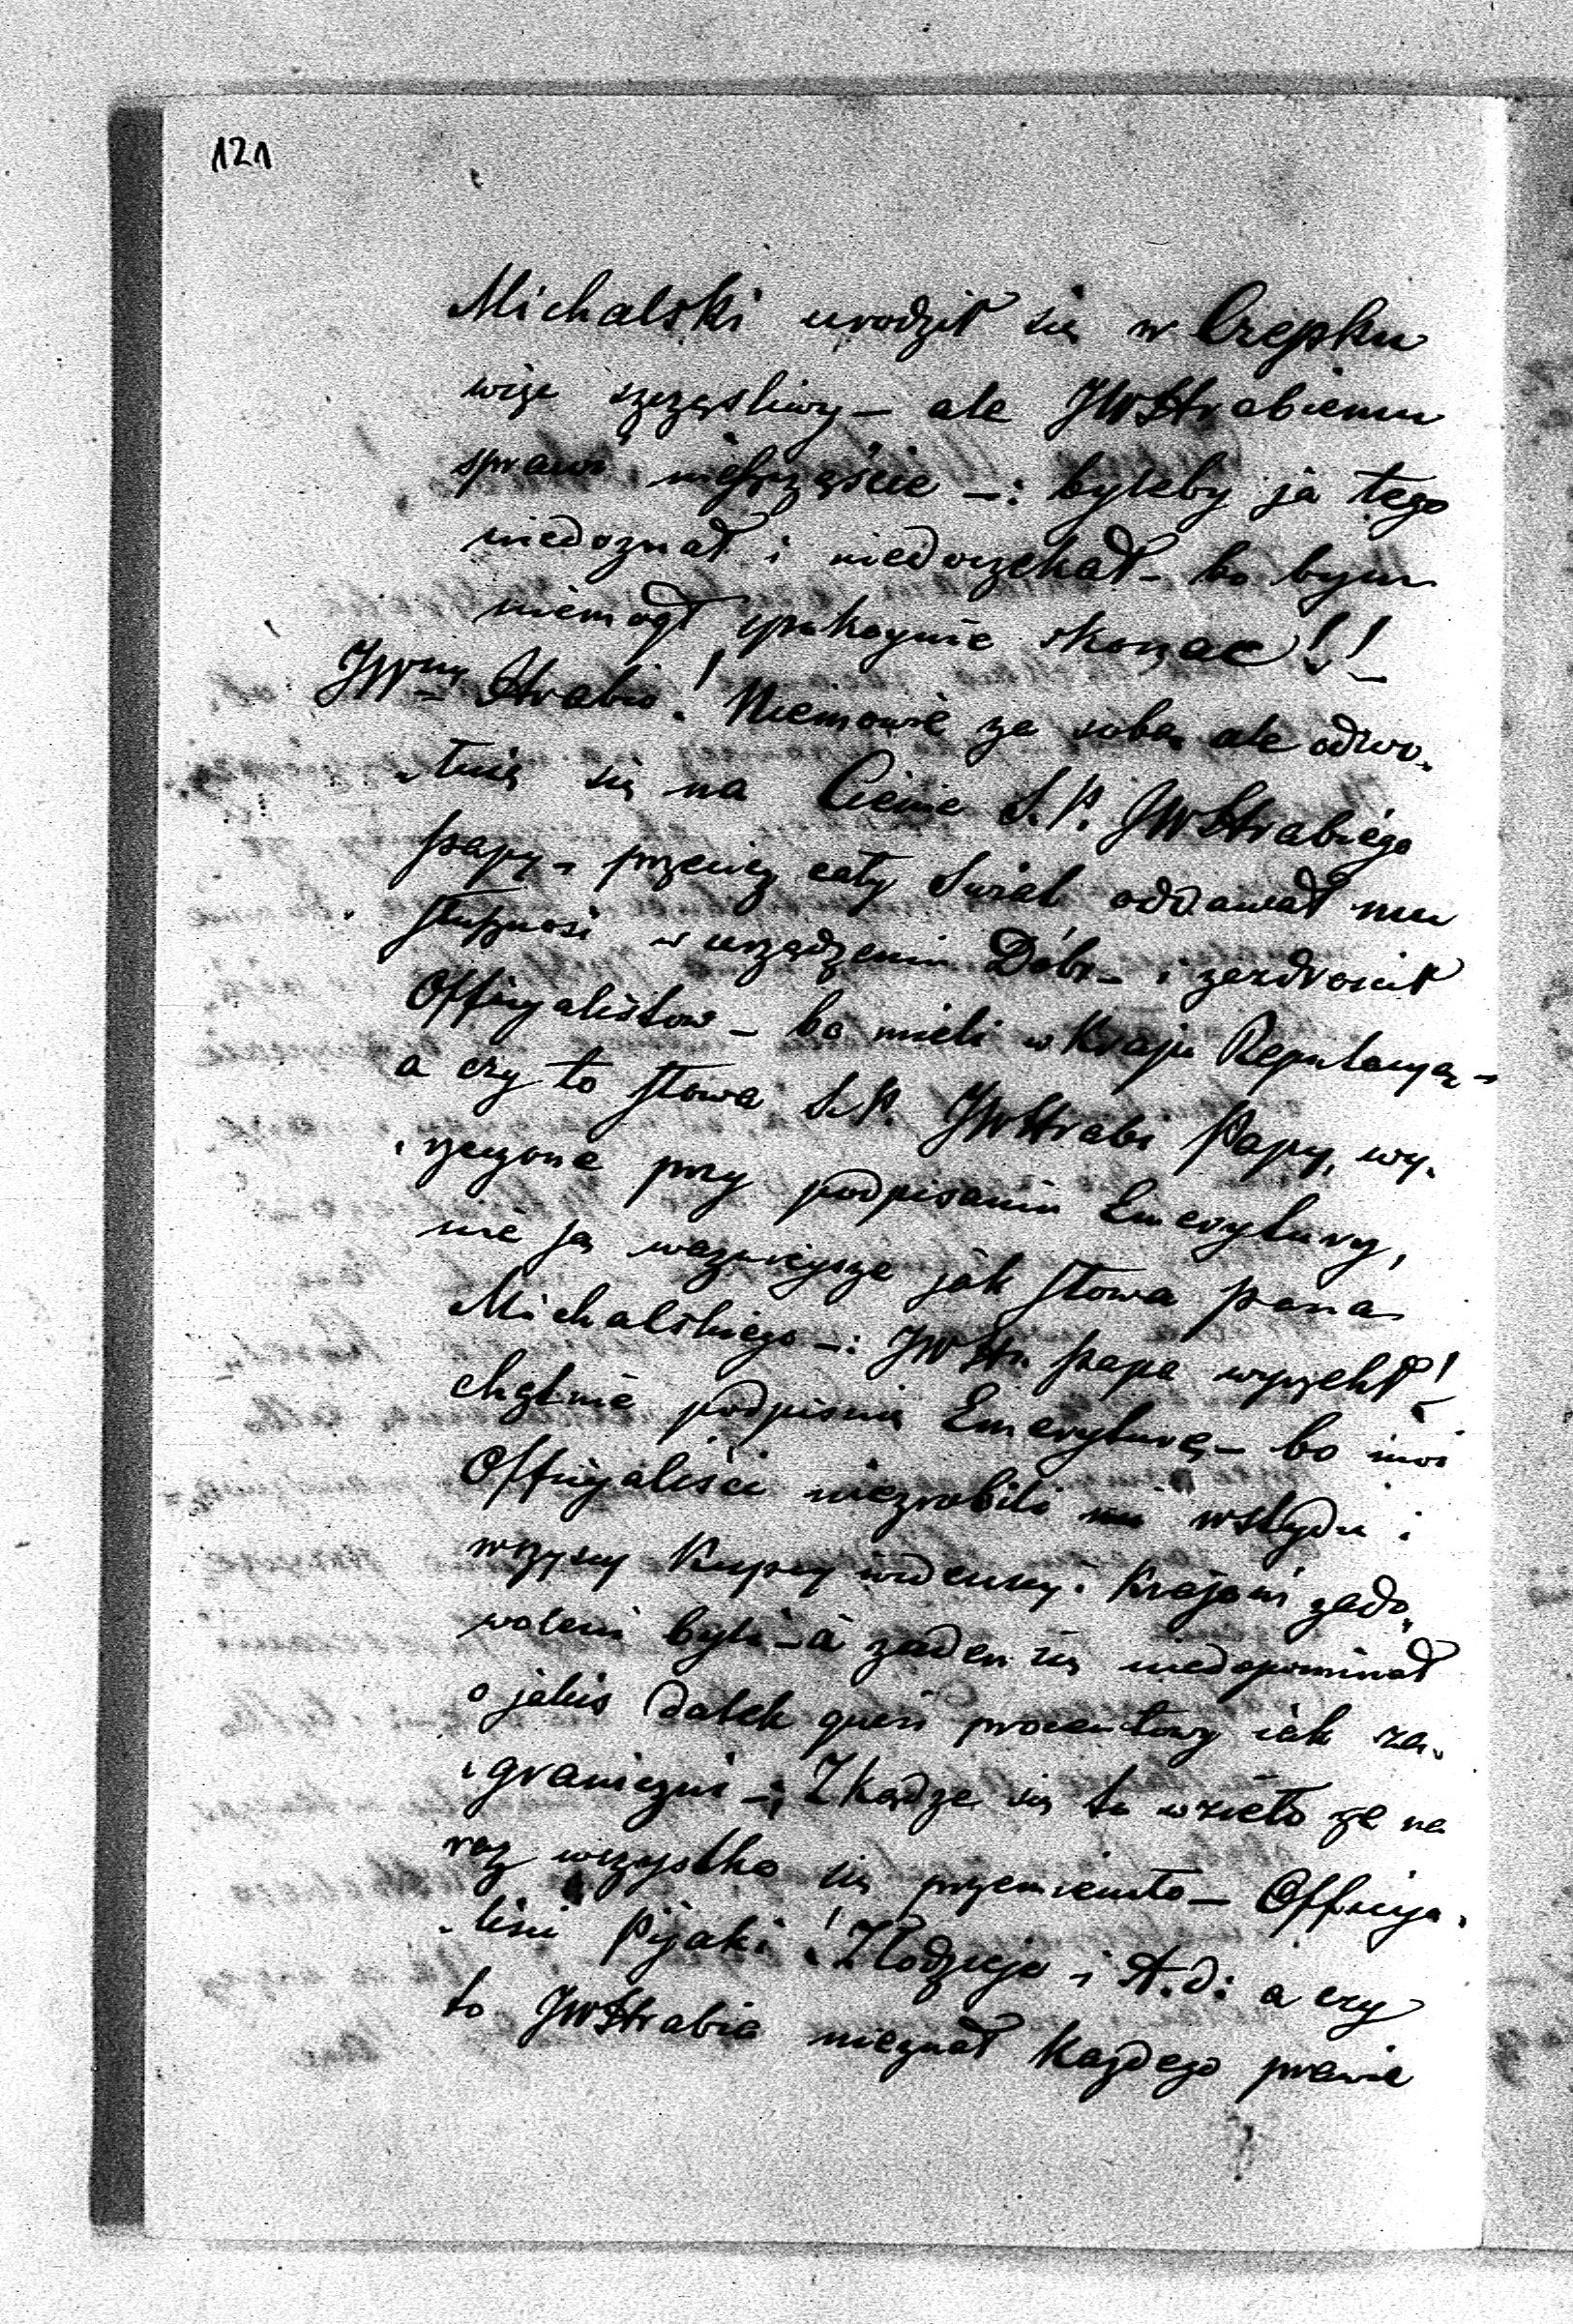 121
Michalski urodził się w Czepku
więc szczęśliwy – ale JWHrabiemu
sprawi nieszczęście –: byleby ja tego
niedoznał i niedoczekał – bo bym
niemógł spokoynie skonac!! –
JWny Hrabio! Niemowie za sobą ale odwo„
„łuię się na Cienie S.P. JWHrabiégo
papy – przeciez cały Swiat oddawał mu
słuszność w urządzeniu Dóbr – i zazdrościł
Officyalistow – bo mieli w Kraju Reputacyą –
a czy to słowa S.P. JWHrabi Papy, wy„
„rzeczone przy podpisaniu Emerytury,
nie są wazniejsze jak słowa pana
Michalskiego –: JWHr. papa wyrzekł!
chętnie podpisuię Emeryturę – bo moi
Officyaliści niezrobili mi wstydu i
wszyscy Kupcy widenscy i Krajowi zado„
woleni byli – a zaden się niedopominał
o jakis datek quasi procentowy iak za„
„graniczni –; Zkądze się to wzieło ze na
raz wszystko się przemieniło – Officya„
„lisci Pijaki! Złodzieje i t.d: a czy
to JWHrabia nieznał Kazdego prawie